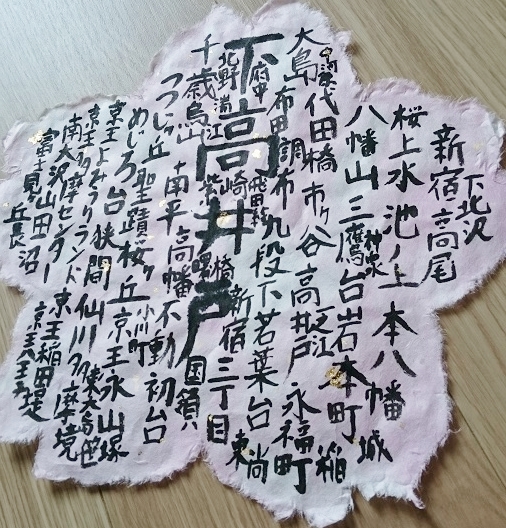 下北沢
新宿高尾
桜上水池ノ上本八幡城
八幡山三鷹台岩本町稲
神泉
代田橋市ヶ谷高井戸永福町
大島
布田調布九段下若葉台
府中
飛田給
新宿三丁目
下高井戸
国領
北野
千歳烏山
つつじヶ丘南平高幡不動初台
めじろ台聖蹟桜ヶ丘京王永山
小川町
京王よみうりランド狭間仙川多摩境
京王多摩センター
南大沢山田
京王稲田堤
富士見ヶ丘長沼
京王八王子